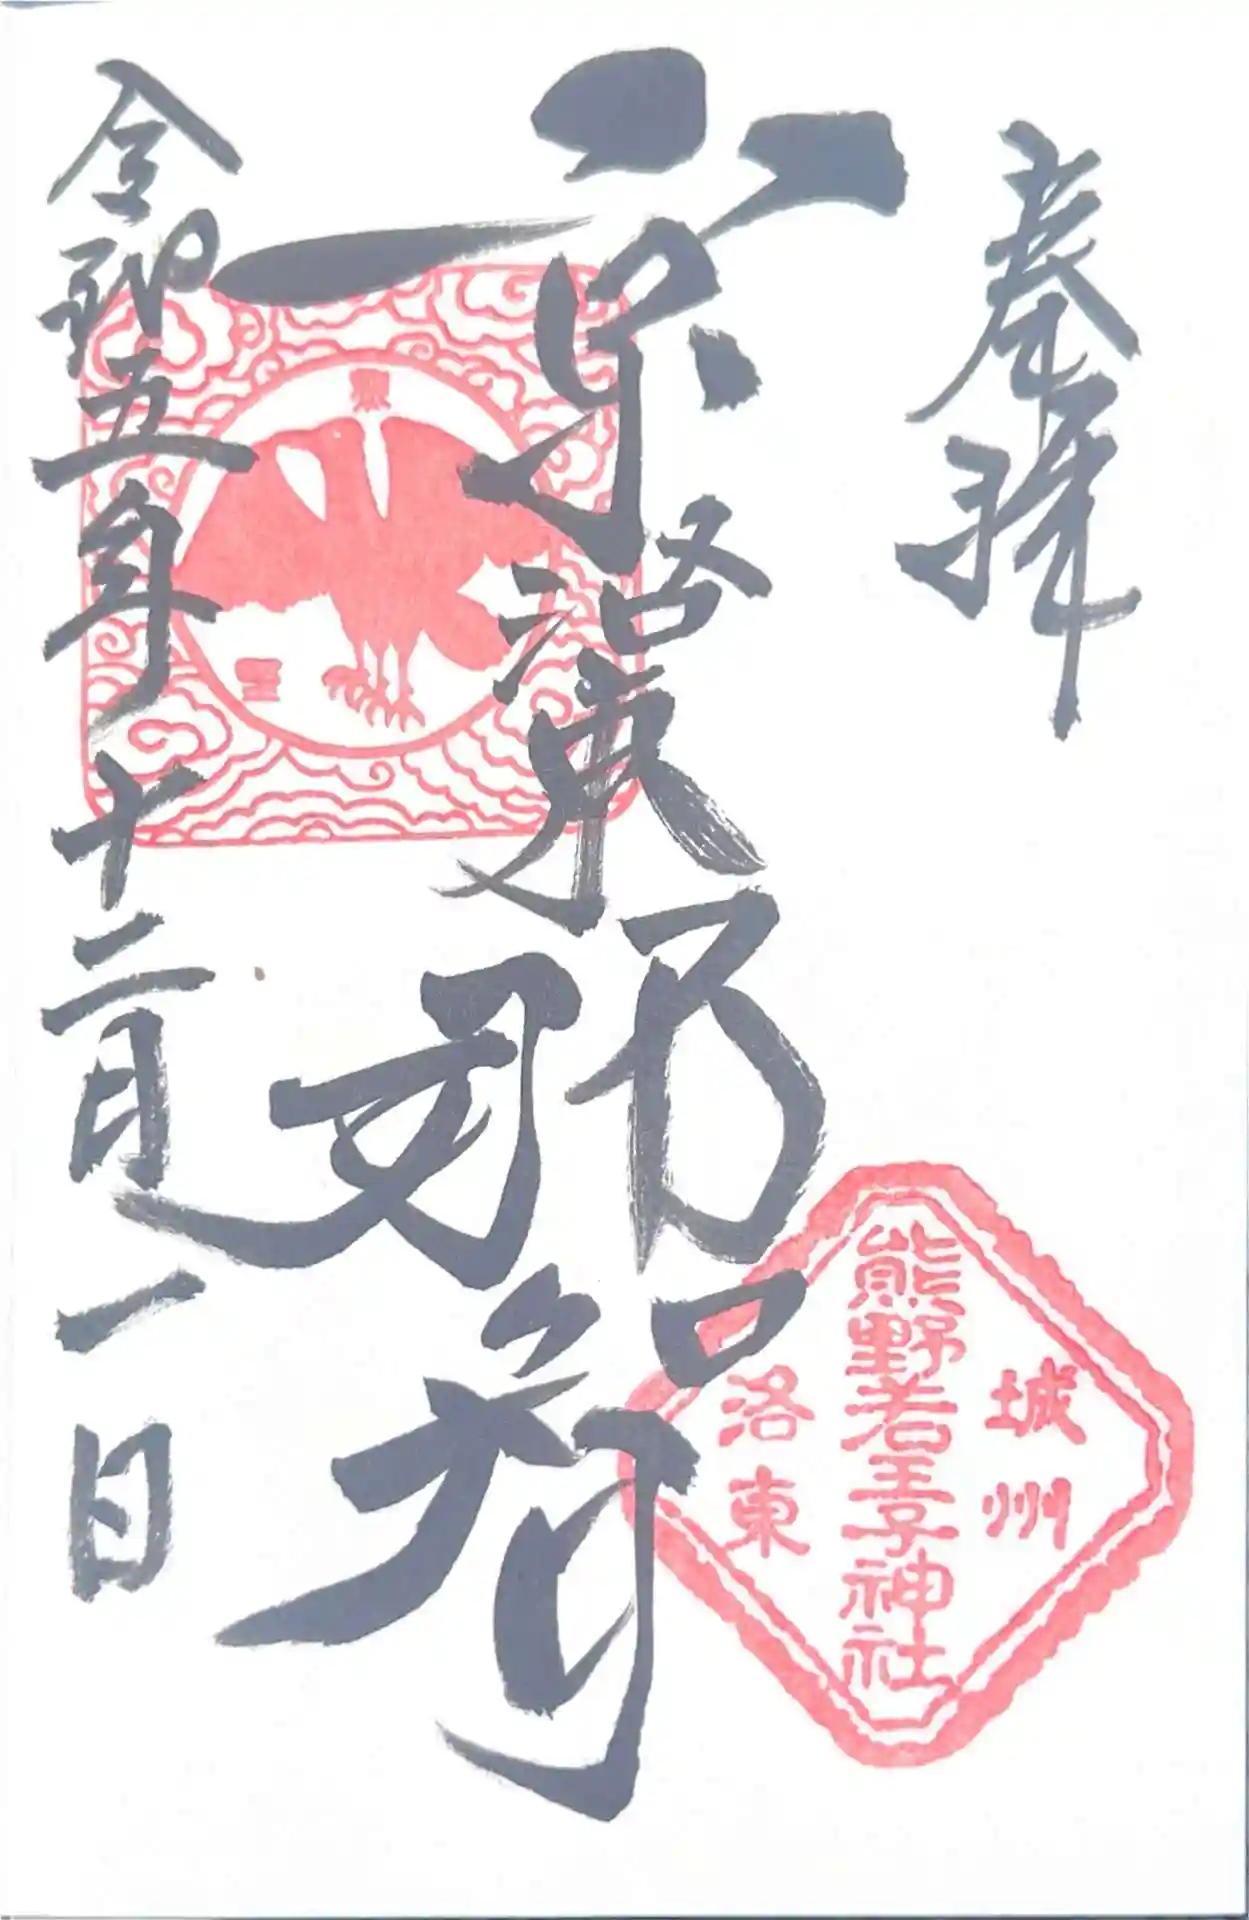 奉拝
京洛東那智
令和五年十二月一日
城州
熊野若王子神社
洛東